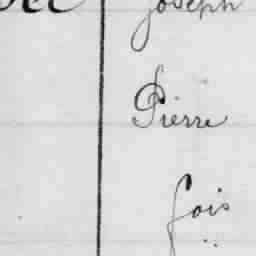 Joseph
Pierre
fois